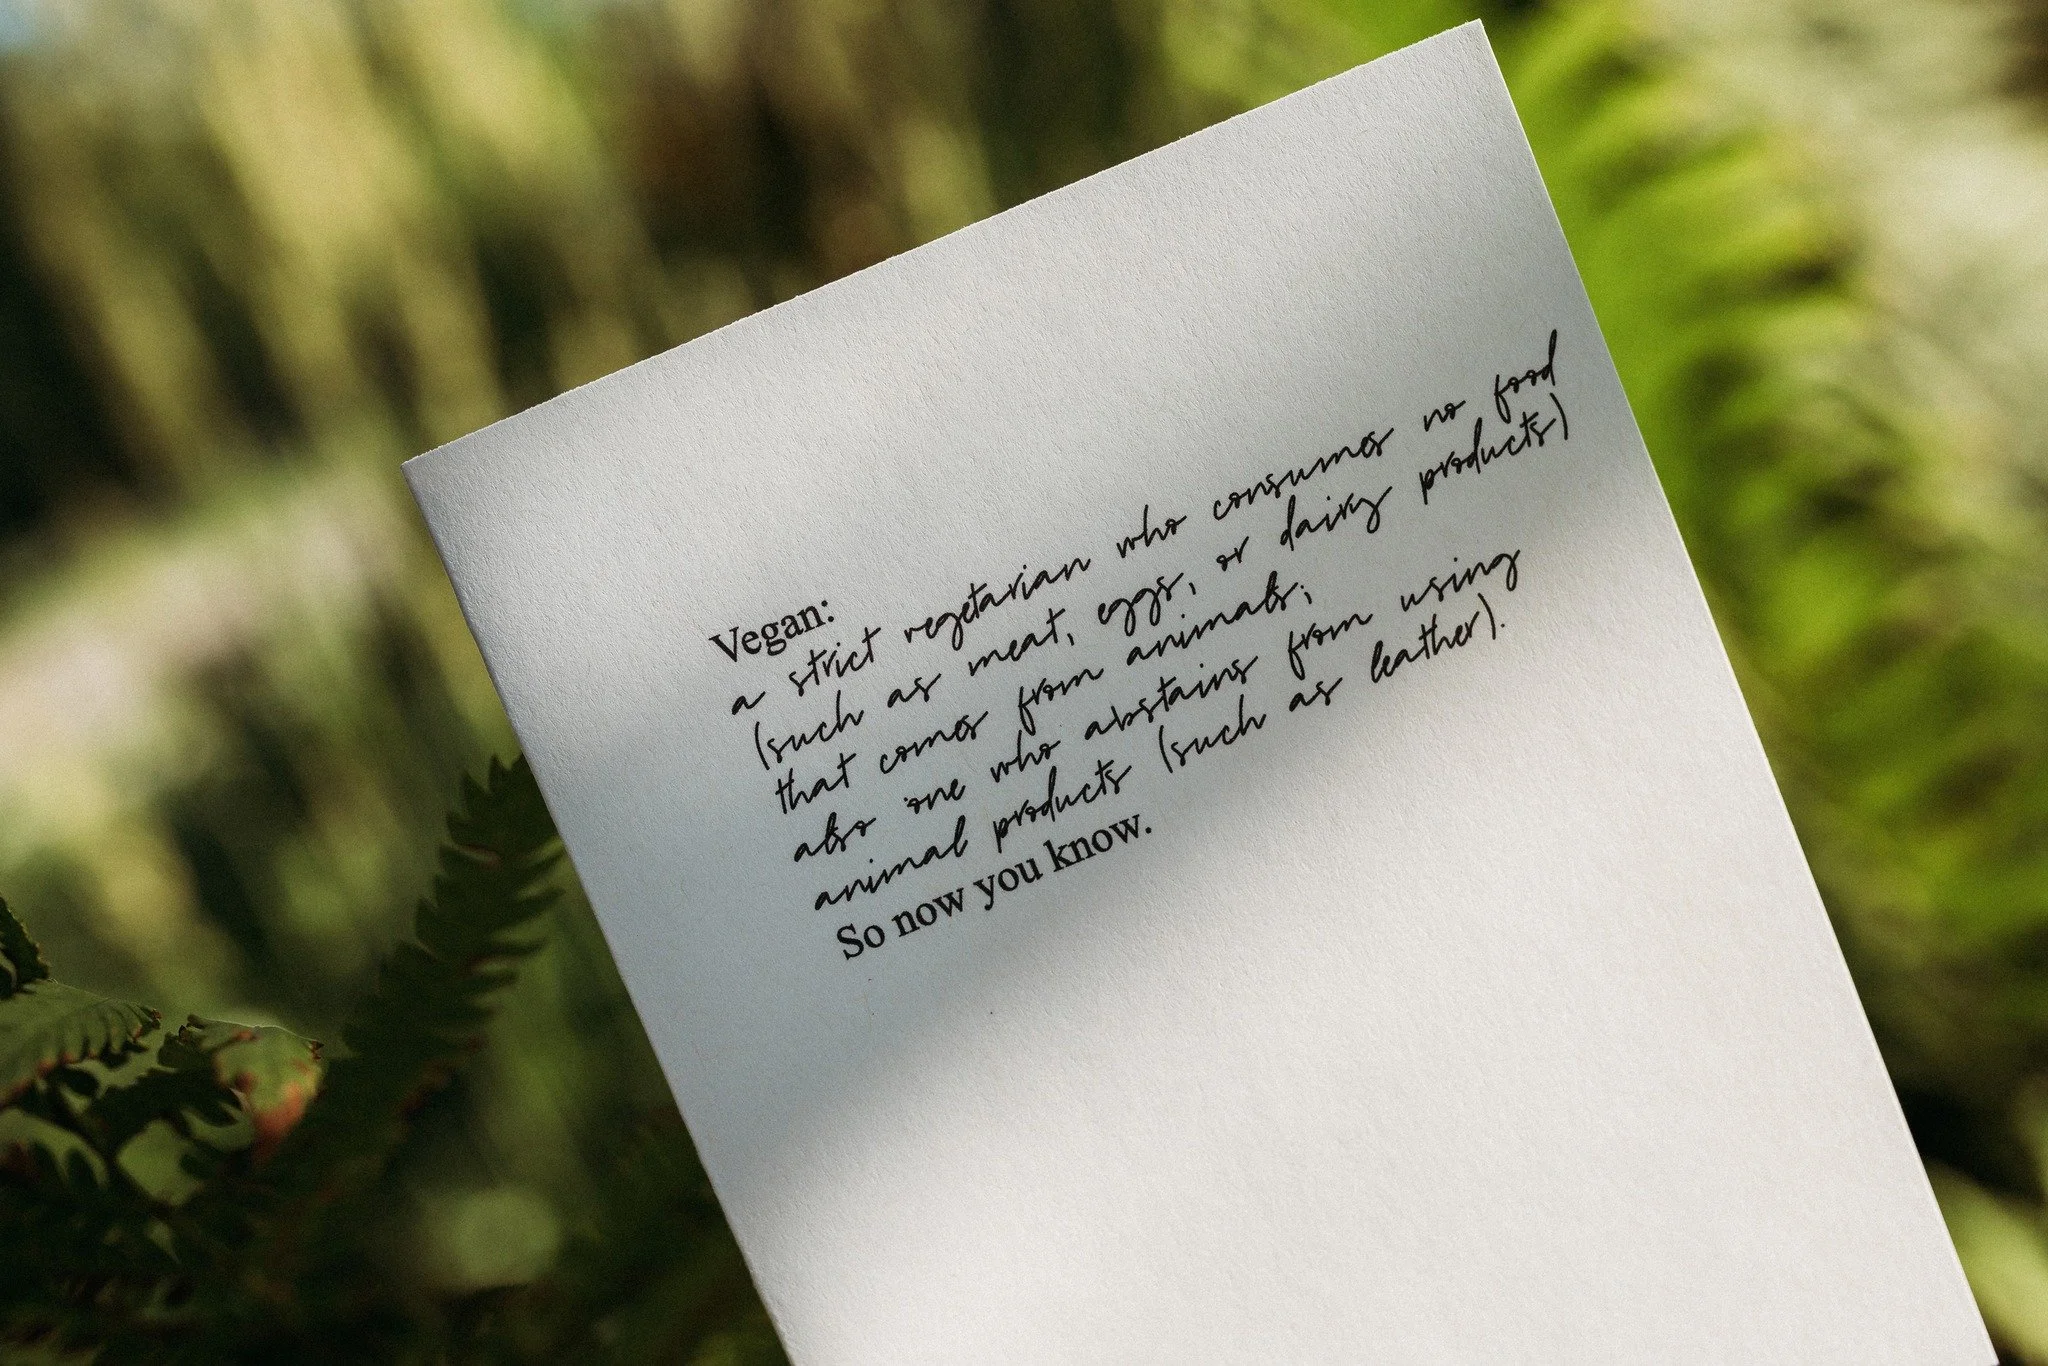 Vegan:
a strict vegetarian who consumes no food
(such as meat, eggs, or dairy products)
that comes from animals;
also one who abstains from using
animal products (such as leather).
So now you know.